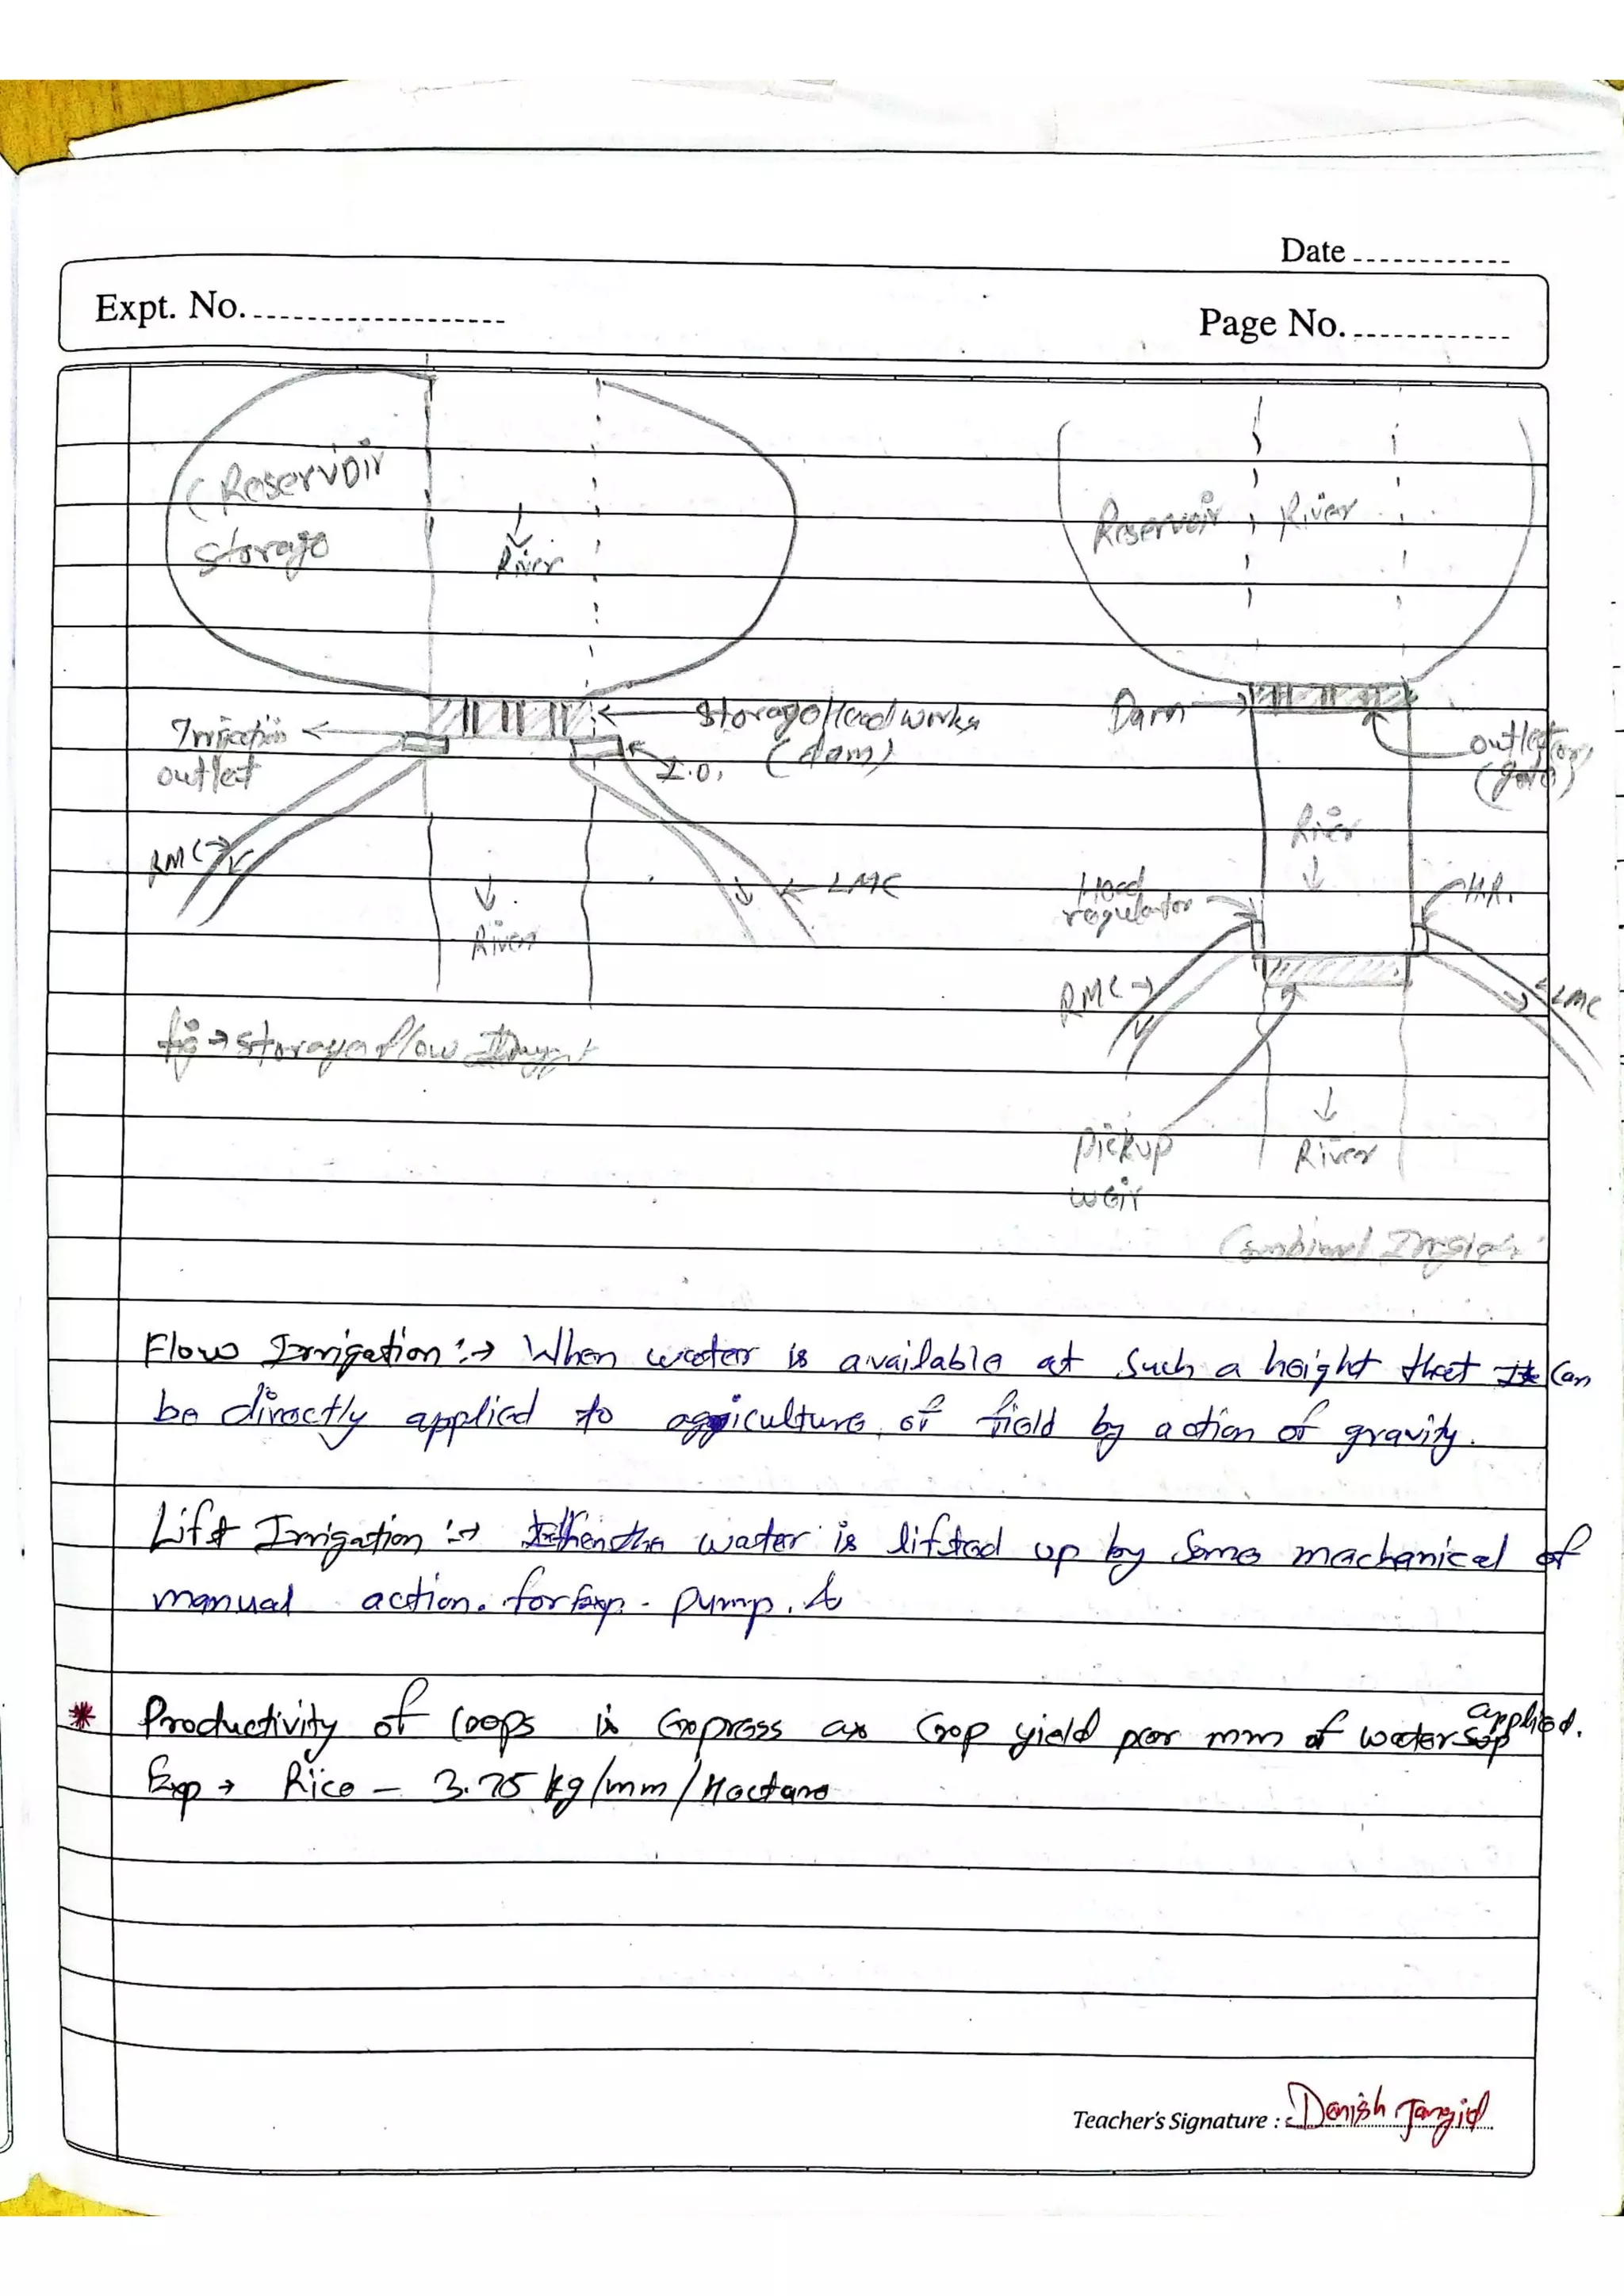 Date
Expt. No.
Page No.
(Reservoir
Storage
River
Irrigation
outlet
Storage Head works
(dam)
I.O.
RMC
LMC
River
fig → storage flow
Reservoir
River
Dam
outlet
River
Head
regulator
H.R.
RMC
LMC
Pickup
weir
River
Combined
Flow Irrigation :→ When water is available at such a height that It can
be directly applied to agriculture of field by action of gravity.
Lift Irrigation :→ water is lifted up by some mechanical of
manual action. for Exp. pump.
* Productivity of Coops is Express as Crop yield per mm of water applied.
Exp → Rice - 3.75 kg/mm/Hactare
Teacher's Signature : Danish Jangid